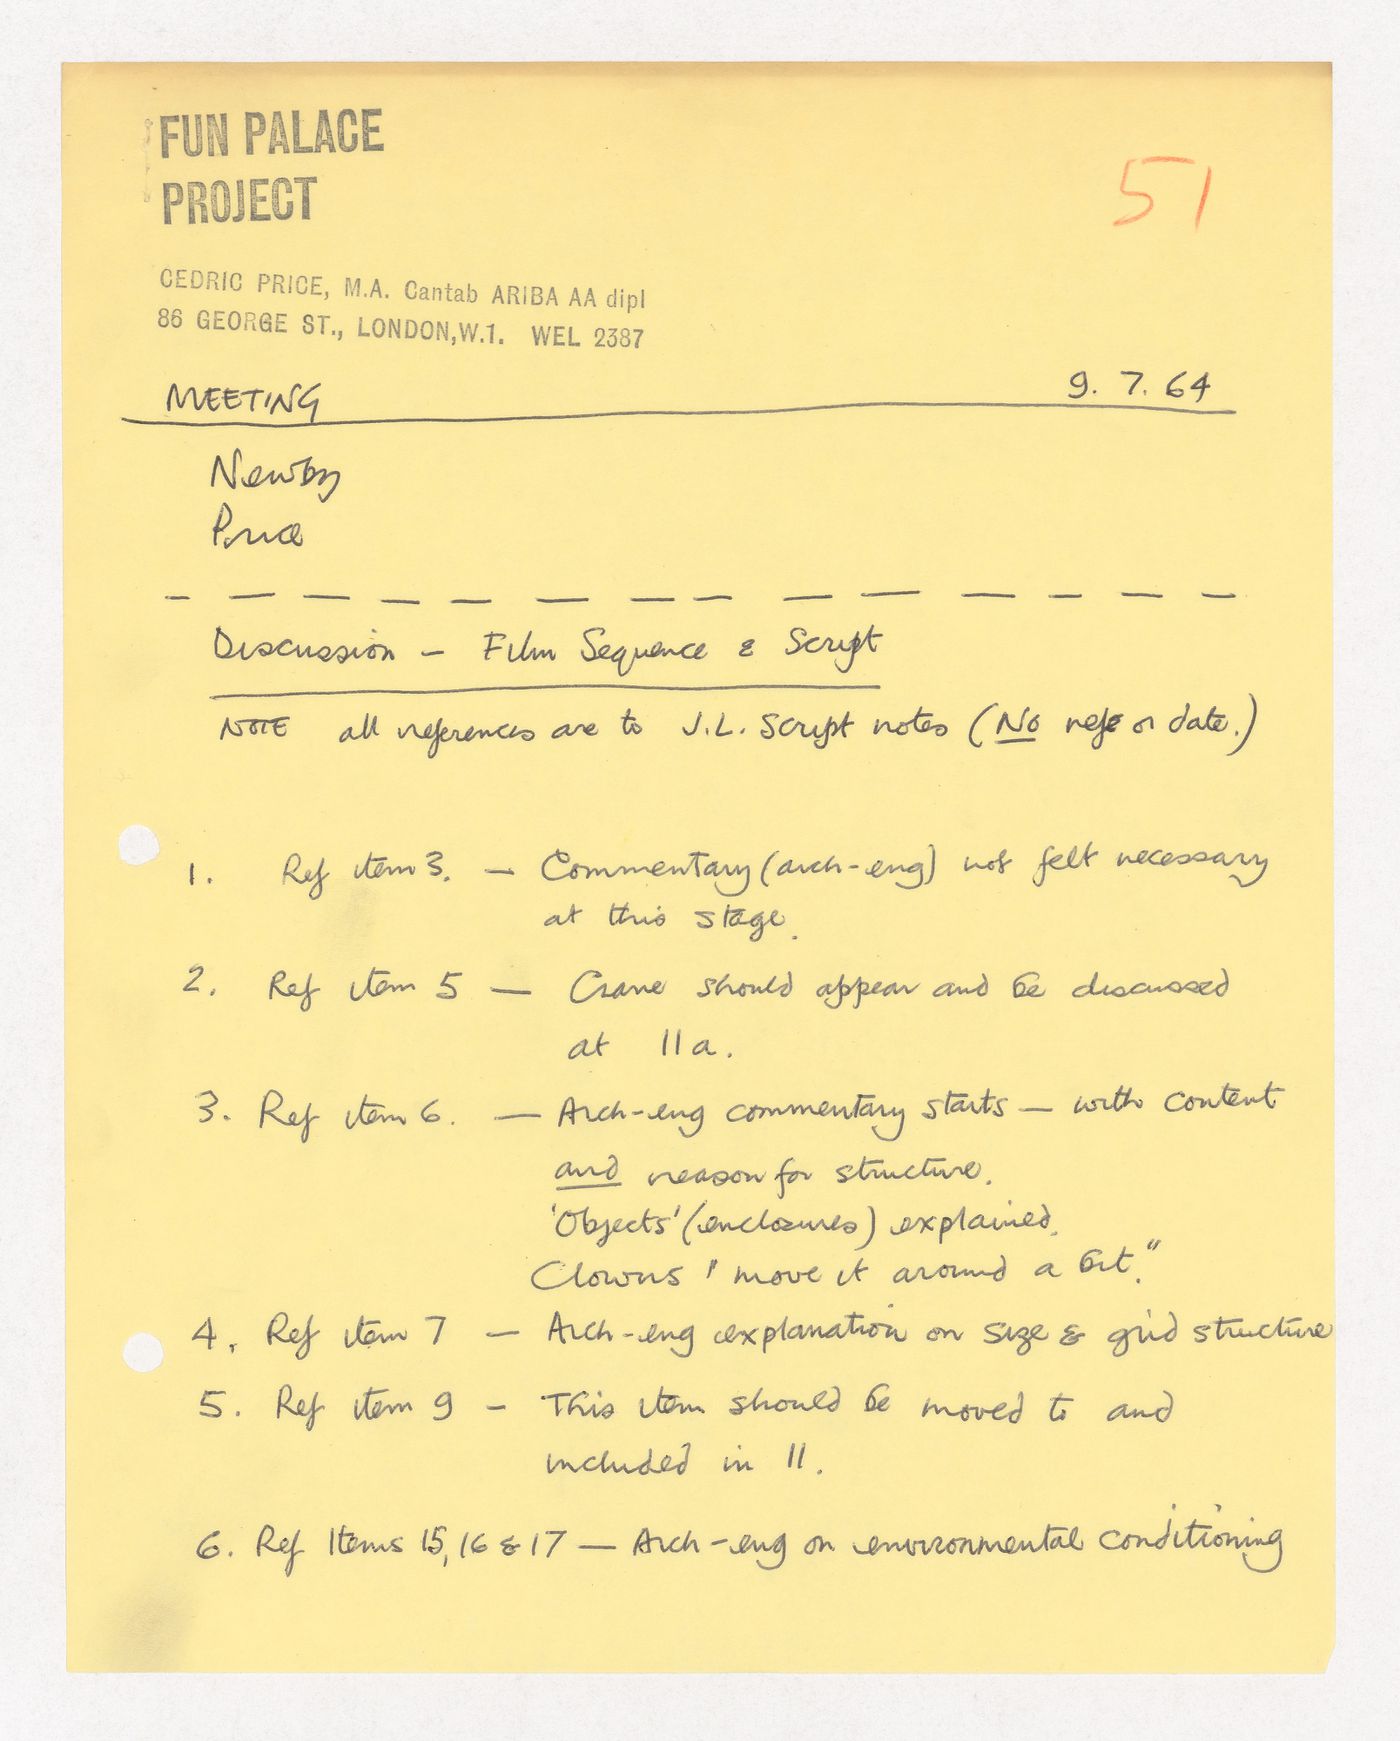 FUN PALACE
PROJECT
51
CEDRIC PRICE, M.A. Cantab ARIBA AA dipl
86 GEORGE ST., LONDON,W.1. WEL 2387
MEETING 9. 7. 64
Newby
Price
Discussion – Film Sequence & Script
NOTE all references are to J.L. Script notes (No refs or date.)
1. Ref item 3. — Commentary (arch-eng) not felt necessary
at this stage.
2. Ref item 5 — Crane should appear and be discussed
at 11a.
3. Ref item 6. — Arch-eng commentary starts — with content
and reason for structure.
'Objects' (enclosures) explained.
Clowns "move it around a bit."
4. Ref item 7 — Arch-eng explanation on size & grid structure
5. Ref item 9 – This item should be moved to and
included in 11.
6. Ref Items 15, 16 & 17 — Arch-eng on environmental conditioning